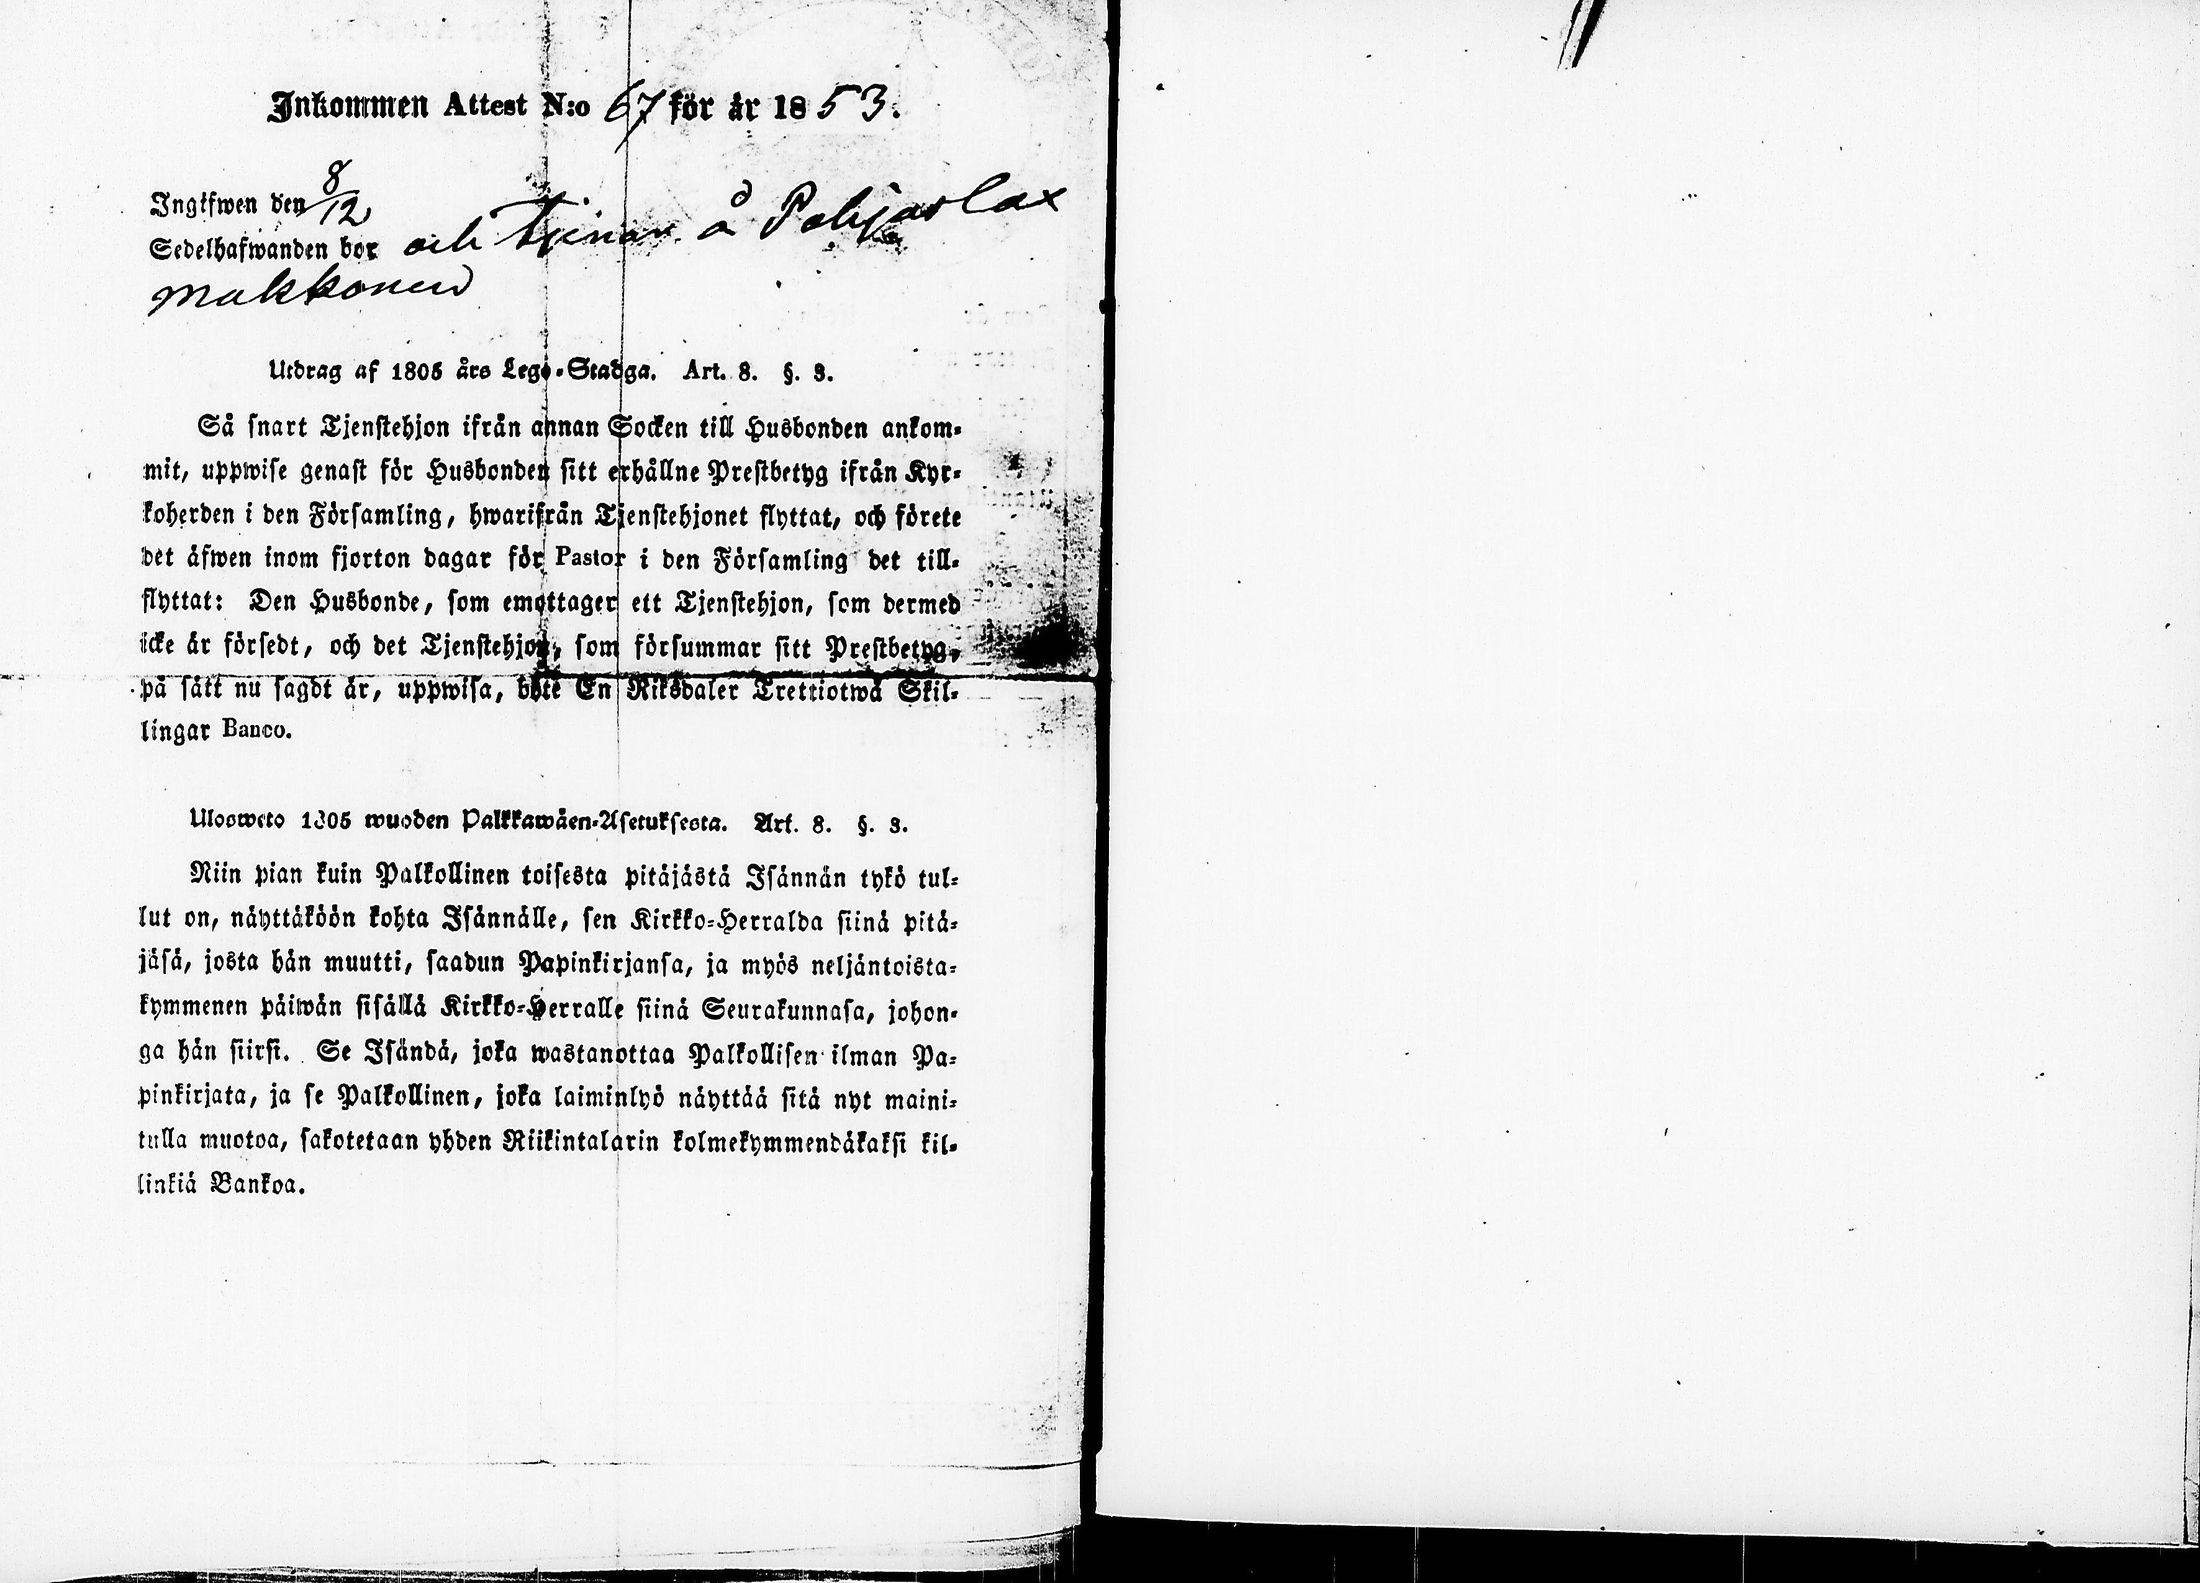 Inkommen Attest N:o 67 för år 1853.
Ingifwen den 8/12
Sedelhafwanden bor och tjenar å Pohjaslax
Makkonen
Utdrag af 1805 års Lego-Stadga. Art. 8. §. 3.
Så snart Tjenstehjon ifrån annan Socken till Husbonden ankom-
mit, uppwise genast för Husbonden sitt erhållne Prestbetyg ifrån Kyr-
koherden i den Församling, hwarifrån Tjenstehjonet flyttat, och förete
det äfwen inom fjorton dagar för Pastor i den Församling det till-
flyttat: Den Husbonde, som emottager ett Tjenstehjon, som dermed
icke är försedt, och det Tjenstehjon, som försummar sitt Prestbetyg,
på sätt nu sagdt är, uppwisa, böte En Riksdaler Trettiotwå Skil-
lingar Banco.
Ulosweto 1805 wuoden Palkkawäen-Asetuksesta. Art. 8. §. 3.
Niin pian kuin Palkollinen toisesta pitäjästä Isännän tykö tul-
lut on, näyttäköön kohta Isännälle, sen Kirkko-Herralda siinä pitä-
jäsä, josta hän muutti, saadun Papinkirjansa, ja myös neljäntoista-
kymmenen päiwän sisällä Kirkko-Herralle siinä Seurakunnasa, johon-
ga hän siirsi. Se Isändä, joka wastanottaa Palkollisen ilman Pa-
pinkirjata, ja se Palkollinen, joka laiminlyö näyttää sitä nyt maini-
tulla muotoa, sakotetaan yhden Riikintalarin kolmekymmendäkaksi kil-
linkiä Bankoa.